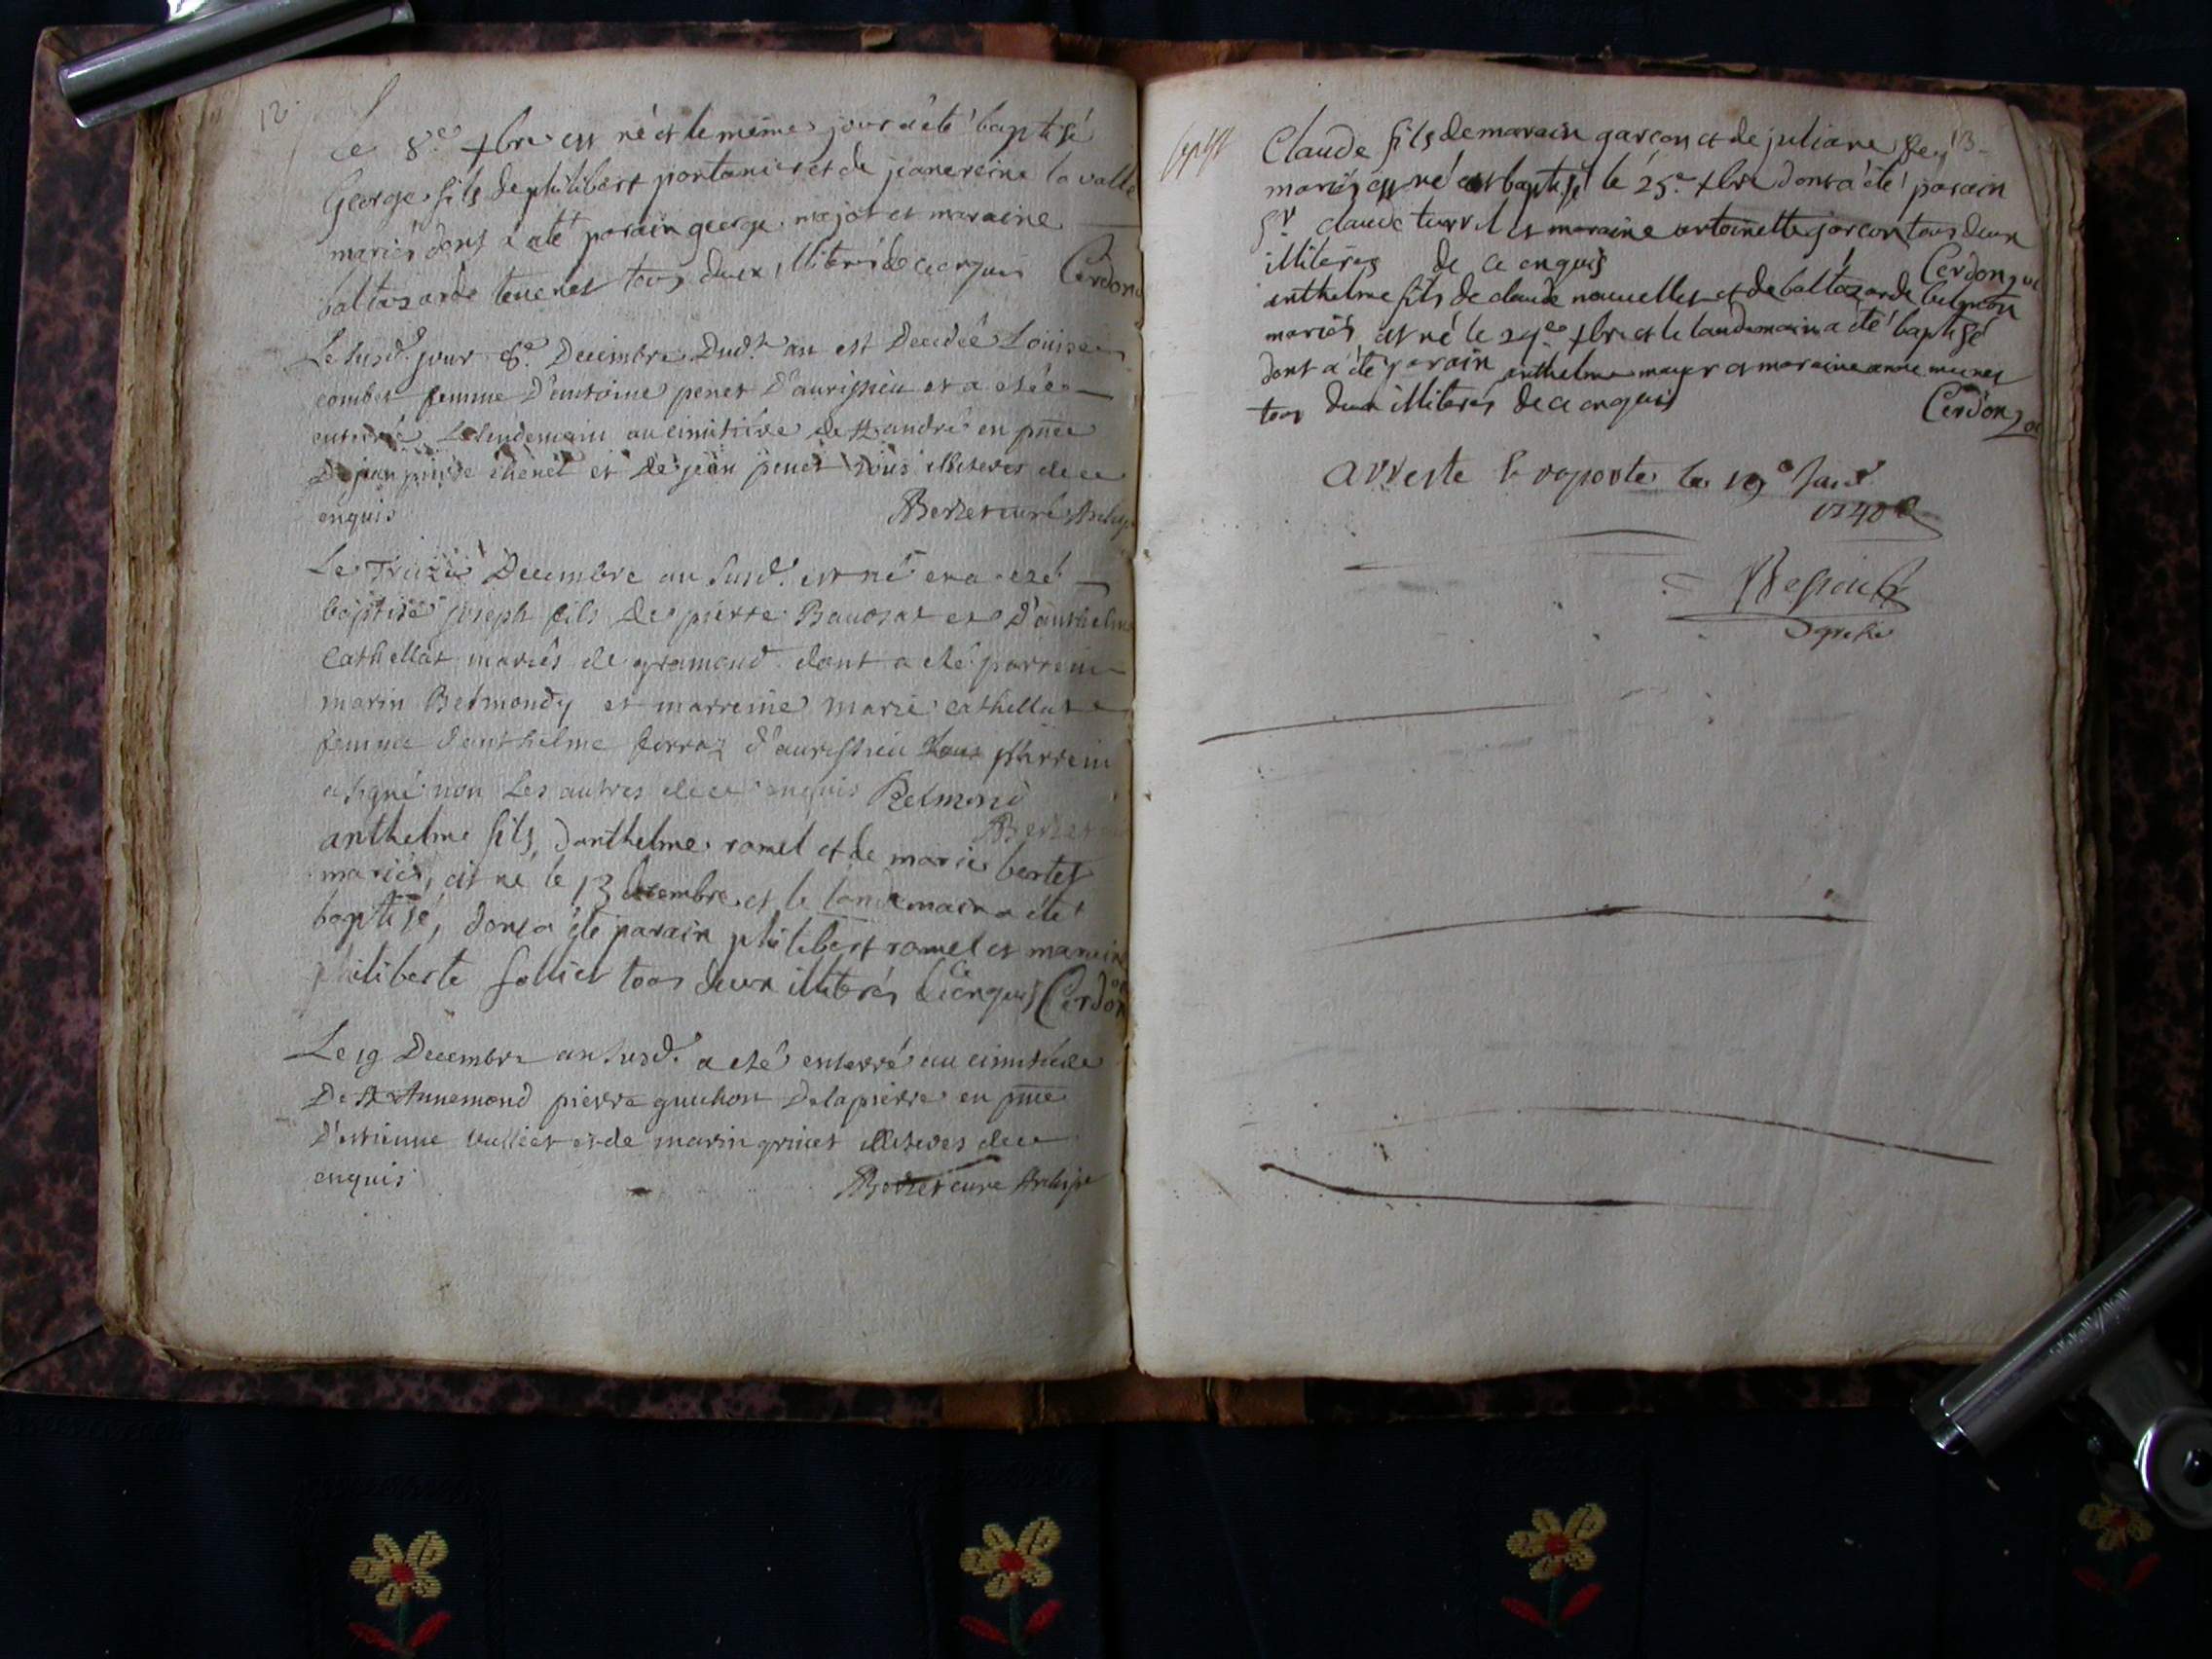 12
Le 8e xbre est né et le même jour a été baptisé
George fils de philibert portanier et de jeane reine la valle
mariés dont a eté parain george majot et maraine
baltazarde tenenet tous deux illiterés de ce enquis Cerdon
Le susd. jour 8e Decembre Dud.t an est Decedée Louise
combet femme D'antoine penet D'aurissieu et a esté
enterrée Le lendemain au cimitière de St andré en pnce
De jean pierre chenet et De jean penet tous illiteres de ce
enquis Berzet curé Archip
Le Treize Decembre an susd. est né et a eté
baptisé joseph fils de pierre Baudrat et D'anthelme
Cathellat mariés de gramond dont a eté parrein
marin Belmondy et marreine marie Cathellat
femme d'anthelme ferraz d'aurissieu parrein
a signé non Les autres de ce enquis Belmond
Berzet
anthelme fils d'anthelme ramel et de marie bertet
mariés, est né le 13 decembre et le landemain a été
baptisé, dont a été parain philibert ramel et maraine
philiberte sollier tous deux illiterés de ce enquis Cerdon
Le 19 Decembre an susd. a eté enterré au cimitiere
De St Annemond pierre guichon Delapierre en pnce
D'estienne Vulliet et de marin grinet illiteres de ce
enquis Berzet cure Archip
13
bapt
Claude fils de marain garçon et de juliane Rey
mariés est né et baptisé le 25e xbre dont a été parain
Sr claude et maraine antoinette garçon tous deux
illiterés de ce enquis Cerdon
anthelme fils de claude nouvellet et de baltazarde
mariés est né le 29e xbre et le landemain a été baptisé
dont a été parain anthelme et maraine anne
tous deux illiterés de ce enquis Cerdon
arreste & raporte le 19e Janr
1740